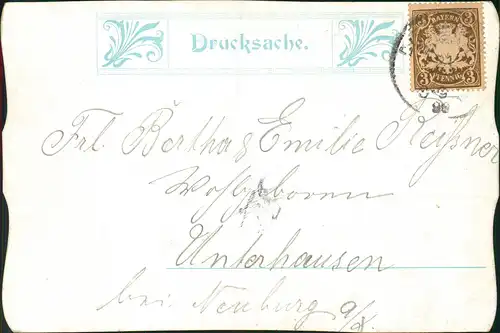 Drucksache.
BAYERN
3 PFENNIG 3
98
Frl. Bertha & Emilie Reißner
Wohlgeboren
Unterhausen
bei Neuburg a/